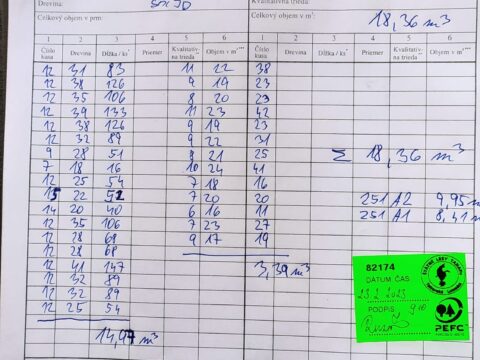 Drevina:
Celkový objem v prm:
Kvalitatívna trieda:
Celkový objem v m³: 18,36 m³
1 2 3 4 5 6 1 2 3 4 5 6
Číslo kusa Drevina Dĺžka / ks Priemer Kvalitatív- na trieda Objem v m³ Číslo kusa Drevina Dĺžka / ks Priemer Kvalitatív- na trieda Objem v m³
12 31 83 11 22 38
12 38 126 9 19 23
12 35 106 8 20 23
12 39 133 11 23 42
12 38 126 9 19 23
12 32 89 9 22 31
9 28 51 8 21 25 Σ 18,36 m³
7 18 16 10 24 41
12 25 54 7 18 16
15 22 7 20 20 251 A2 9,95 m³
14 20 40 6 16 11 251 A1 8,41 m³
12 35 106 7 23 27
12 28 69 9 17 19
12 28 69
12 41 147 3,39 m³
12 32 89
12 32 89
12 25 54
14,97 m³
82174
DÁTUM ČAS
23.2.2023
PODPIS 9:10
PEFC